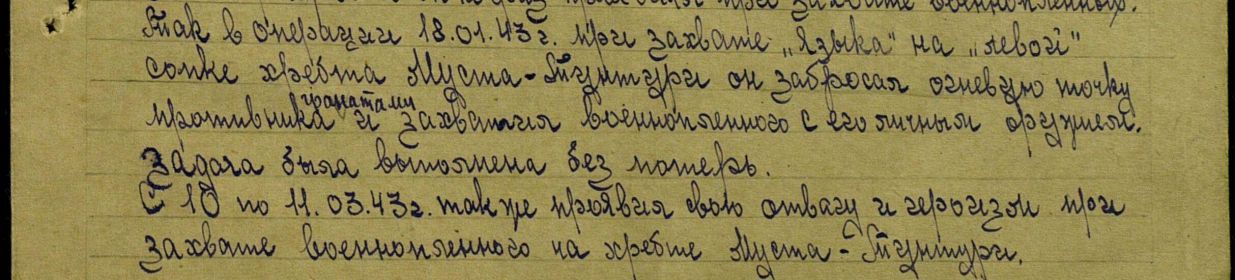 при захвате военнопленных.
Так в операции 18.01.43г. при захвате „Языка" на „левой"
сопке хребта Муста-Тунтури он забросал огневую точку
противника гранатами и захватил военнопленного с его личным оружием.
Задача была выполнена без потерь.
С 10 по 11.03.43г. также проявил свою отвагу и героизм при
захвате военнопленного на хребте Муста-Тунтури.